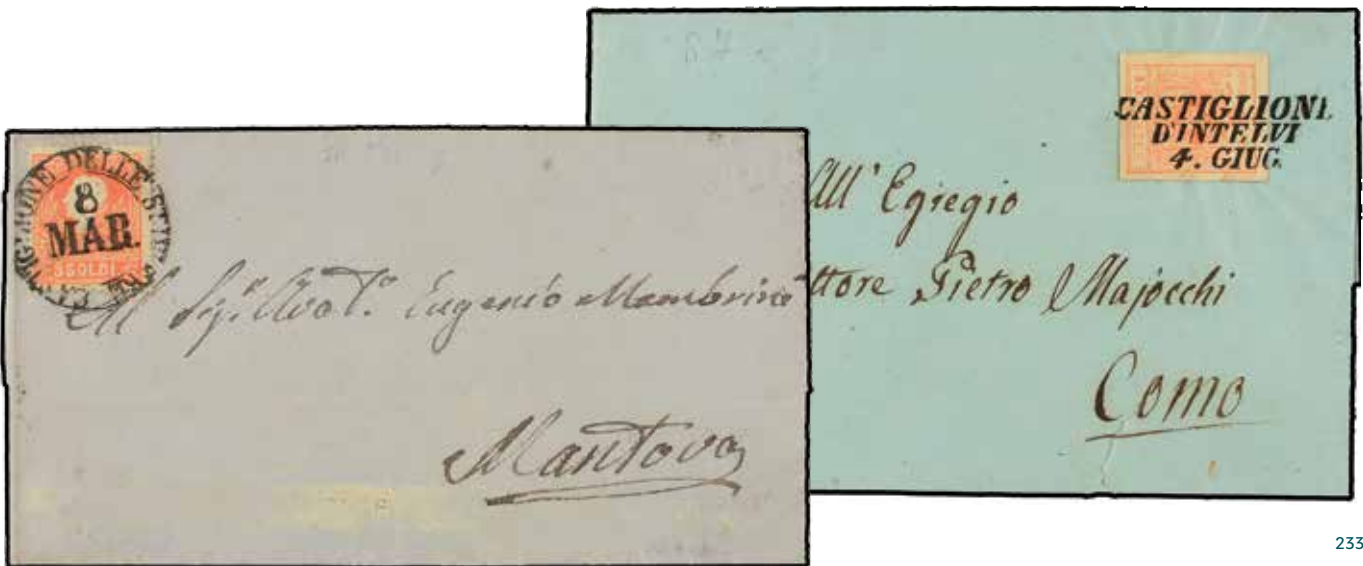 CASTIGLIONE DELLE STIVIERE
8
MAR.
3 SOLDI
Al Sig.r Avvt.o Eugenio Mambrini
Mantova
CASTIGLIONE
D'INTELVI
4. GIUG.
All' Egregio
ttore Pietro Majocchi
Como
233